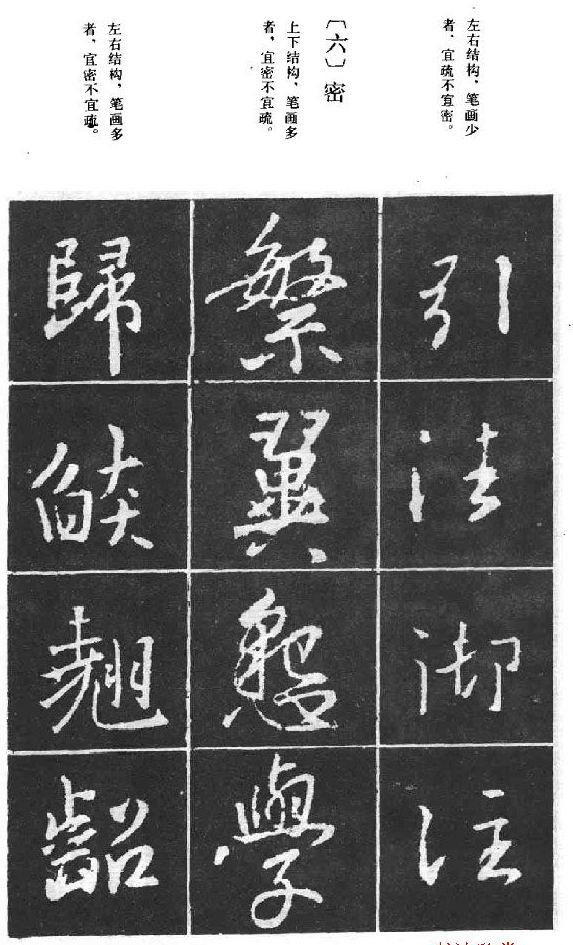 左右结构，笔画少
者，宜疏不宜密。
〔六〕密
上下结构，笔画多
者，宜密不宜疏。
左右结构，笔画多
者，宜密不宜疏。
引
法
御
注
繁
翼
懇
學
歸
翹
齠